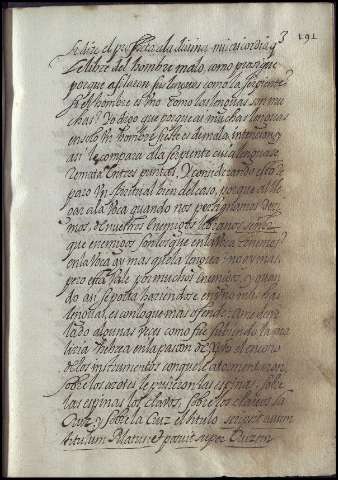 3 191
se dize el propheta a la divina misericordia q
le libre del hombre malo, como pronique
porque afilaron sus lenguas como la serpiente
si el hombre es uno como las lenguas son mu
chas? yo digo que porque ay muchas lenguas
en solo un hombre si este es de mala intencion, y
asi le compara a la serpiente cuia lengua se
remata en tres puntas. Y considerando esto re
paro un spiritual bien del caso, porque al lle
gar a la boca quando nos persignamos dezi
mos, de nuestros enemigos libranos señor
que enemigos son los que en la boca tenemos?
en la boca ay mas que la lengua? no ay mas
pero esta vale por muchos enemigos, y quan
do asi se porta haziendose en uno muchas
lenguas, es con lo que mas ofende
lado algunas veces como fue subiendo la ma
licia hebrea en la pasion de Xpto el encono
de los instrumentos con que le atormentaron,
sobre los azotes le pusieron las espinas, sobre
las espinas los clavos, sobre los clavos la
Cruz, y sobre la Cruz el titulo. scripsit autem
titulum Pilatus et posuit super Crucem